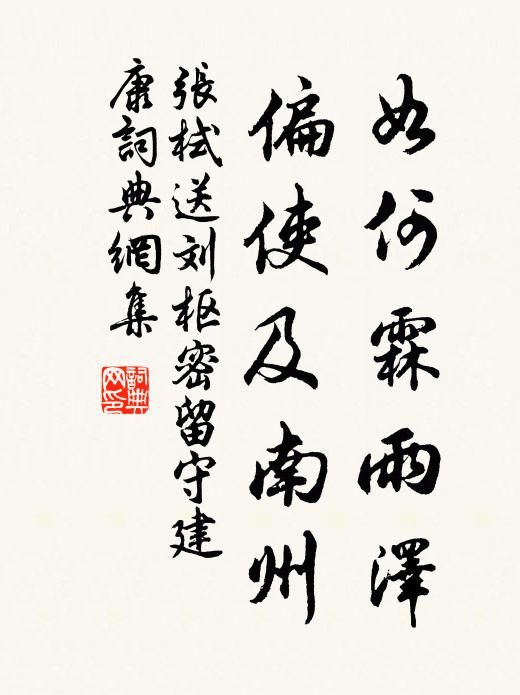 如何霖雨澤
偏使及南州
張栻送刘枢密留守建
康詞典網集
詞典
网印